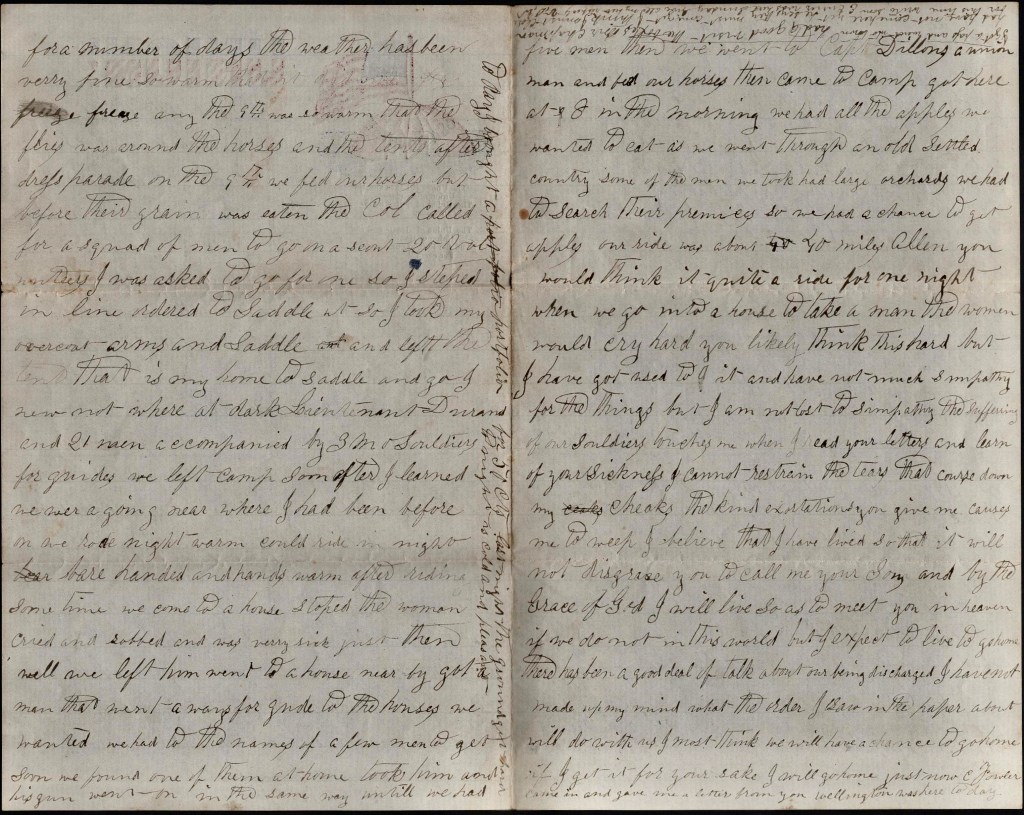 for a number of days the weather has been
verry fine so warm
freeze any the 9th was so warm that the
flies was around the horses and the tents after
dress parade on the 9th we fed our horses but
before their grain was eaten the Col called
for a squad of men to go on a scout 20 Vol
unteers I was asked to go for one so I steped
in line ordered to saddle up so I took my
overcoat arms and saddle and left the
tent that is my home to saddle and go I
new not where at dark Lieutenant Durand
and 21 men accompanied by 3 Mo Souldiers
for guides we left camp Soon after I learned
we wer a going near where I had been before
on we rode night warm could ride in night
bare handed and hands warm after riding
some time we come to a house stoped the woman
cried and sobbed and was verry sick just then
well we left him went to a house near by got a
man that went a ways for guide to the houses we
wanted we had to the names of a few men to get
soon we found one of them at home took him and
his gun went on in the same way untill we had
five men then we went to Capt Dillons a union
man and fed our horses then came to camp got here
at 8 in the morning we had all the apples we
wanted to eat as we went through an old settled
country some of the men we took had large orchards we had
to search their premices so we had a chance to get
apples our ride was about 40 miles Allen you
would think it quite a ride for one night
when we go into a house to take a man the women
would cry hard you likely think this hard but
I have got used to it and have not much simpathy
for the things but I am not lost to simpathy the suffering
of our souldiers touches me when I read your letters and learn
of your sickness I cannot restrain the tears that course down
my cheaks the kind exortations you give me causes
me to weep I believe that I have lived so that it will
not disgrace you to call me your Son and by the
Grace of God I will live so as to meet you in heaven
if we do not in this world but I expect to live to go home
there has been a good deal of talk about our being discharged I have not
made up my mind what the order I saw in the paper about
will do with us I most think we will have a chance to go home
if I get it for your sake I will go home just now C Fowler
came in and gave me a letter from you wellington was here to day
To day I bought a
last night the ground
cold and pleasant